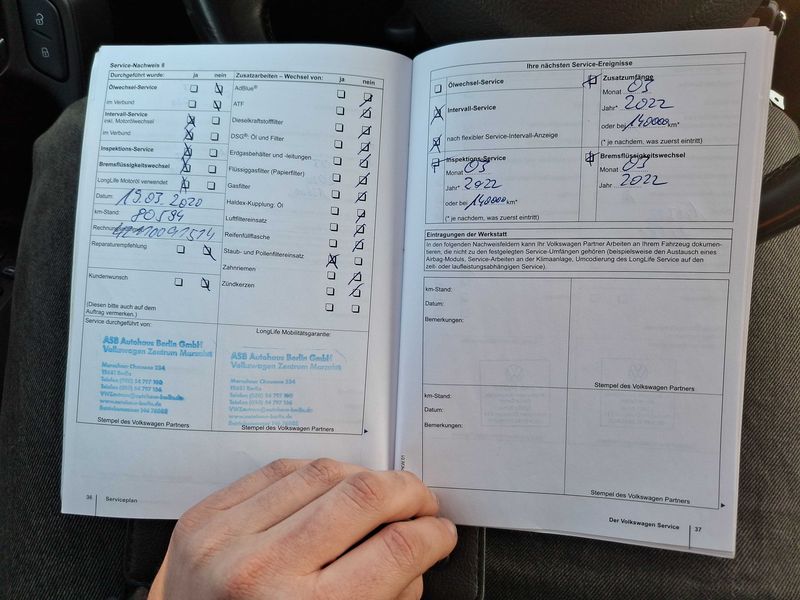 Service-Nachweis 8
Durchgeführt wurde: ja nein
Ölwechsel-Service
im Verbund
Intervall-Service
inkl. Motorölwechsel
im Verbund
Inspektions-Service
Bremsflüssigkeitswechsel
LongLife Motoröl verwendet
Datum: 19.03.2020
km-Stand: 80594
Reparaturempfehlung
Kundenwunsch
(Diesen bitte auch auf dem
Auftrag vermerken.)
Service durchgeführt von:
ASB Autohaus Berlin GmbH
Volkswagen Zentrum Marzahn
Stempel des Volkswagen Partners
Zusatzarbeiten – Wechsel von: ja nein
AdBlue®
ATF
Dieselkraftstofffilter
DSG®: Öl und Filter
Erdgasbehälter und -leitungen
Flüssiggasfilter (Papierfilter)
Gasfilter
Haldex-Kupplung: Öl
Luftfiltereinsatz
Reifenfüllflasche
Staub- und Pollenfiltereinsatz
Zahnriemen
Zündkerzen
LongLife Mobilitätsgarantie:
ASB Autohaus Berlin GmbH
Volkswagen Zentrum Marzahn
Stempel des Volkswagen Partners
36 Serviceplan
Ihre nächsten Service-Ereignisse
Ölwechsel-Service
Intervall-Service
nach flexibler Service-Intervall-Anzeige
Zusatzumfänge
Monat 03
Jahr* 2022
oder bei 140000 km*
(* je nachdem, was zuerst eintritt)
Inspektions-Service
Monat 03
Jahr* 2022
oder bei 140000 km*
(* je nachdem, was zuerst eintritt)
Bremsflüssigkeitswechsel
Monat 03
Jahr 2022
Eintragungen der Werkstatt
In den folgenden Nachweisfeldern kann Ihr Volkswagen Partner Arbeiten an Ihrem Fahrzeug dokumen-
tieren, die nicht zu den festgelegten Service-Umfängen gehören (beispielsweise den Austausch eines
Airbag-Moduls, Service-Arbeiten an der Klimaanlage, Umcodierung des LongLife Service auf den
zeit- oder laufleistungsabhängigen Service).
km-Stand:
Datum:
Bemerkungen:
Stempel des Volkswagen Partners
km-Stand:
Datum:
Bemerkungen:
Stempel des Volkswagen Partners
Der Volkswagen Service 37